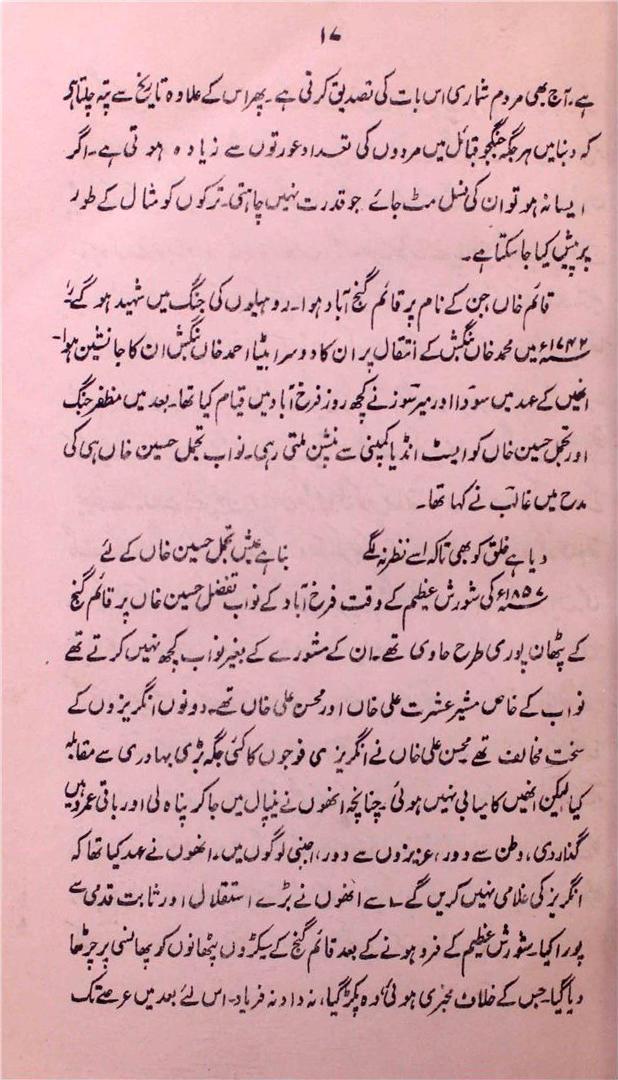 ۱۷
ہے۔ آج بھی مردم شماری اس بات کی تصدیق کرتی ہے۔ پھر اس کے علاوہ تاریخ سے پتہ چلتا ہے
کہ دنیا میں ہر جگہ جنگجو قبائل میں مردوں کی تعداد عورتوں سے زیادہ ہوتی ہے۔ اگر
ایسا نہ ہو تو ان کی نسل مٹ جائے جو قدرت نہیں چاہتی۔ ترکوں کو مثال کے طور
پر پیش کیا جا سکتا ہے۔
قائم خاں جن کے نام پر قائم گنج آباد ہوا۔ روہیلوں کی جنگ میں شہید ہو گئے۔
۱۷۴۲ء میں محمد خاں بنگش کے انتقال پر ان کا دوسرا بیٹا احمد خاں بنگش ان کا جانشین ہوا۔
انھیں کے عہد میں سودا اور میر سوز نے کچھ روز فرخ آباد میں قیام کیا تھا۔ بعد میں مظفر جنگ
اور تجمل حسین خاں کو ایسٹ انڈیا کمپنی سے پنشن ملتی رہی۔ نواب تجمل حسین خاں ہی کی
مدح میں غالب نے کہا تھا۔
دیا ہے خلق کو بھی تاکہ اسے نظر نہ لگے بنا ہے عیش تجمل حسین خاں کے لئے
۱۸۵۷ء کی شورش عظیم کے وقت فرخ آباد کے نواب تفضل حسین خاں پر قائم گنج
کے پٹھان پوری طرح حاوی تھے۔ ان کے مشورے کے بغیر نواب کچھ نہیں کرتے تھے
نواب کے خاص مشیر عشرت علی خاں اور محسن علی خاں تھے۔ دونوں انگریزوں کے
سخت مخالف تھے محسن علی خاں نے انگریزی فوجوں کا کئی جگہ بڑی بہادری سے مقابلہ
کیا لیکن انھیں کامیابی نہیں ہوئی۔ چنانچہ انھوں نے نیپال میں جا کر پناہ لی اور باقی عمر وہیں
گذار دی، وطن سے دور، عزیزوں سے دور، اجنبی لوگوں میں۔ انھوں نے عہد کیا تھا کہ
انگریز کی غلامی نہیں کریں گے۔ اسے انھوں نے بڑے استقلال اور ثابت قدمی سے
پورا کیا۔ شورش عظیم کے فرو ہونے کے بعد قائم گنج کے سیکڑوں پٹھانوں کو پھانسی پر چڑھا
دیا گیا۔ جس کے خلاف مخبری ہوئی، وہ پکڑا گیا، نہ داد نہ فریاد۔ اس لئے بعد میں عرصے تک